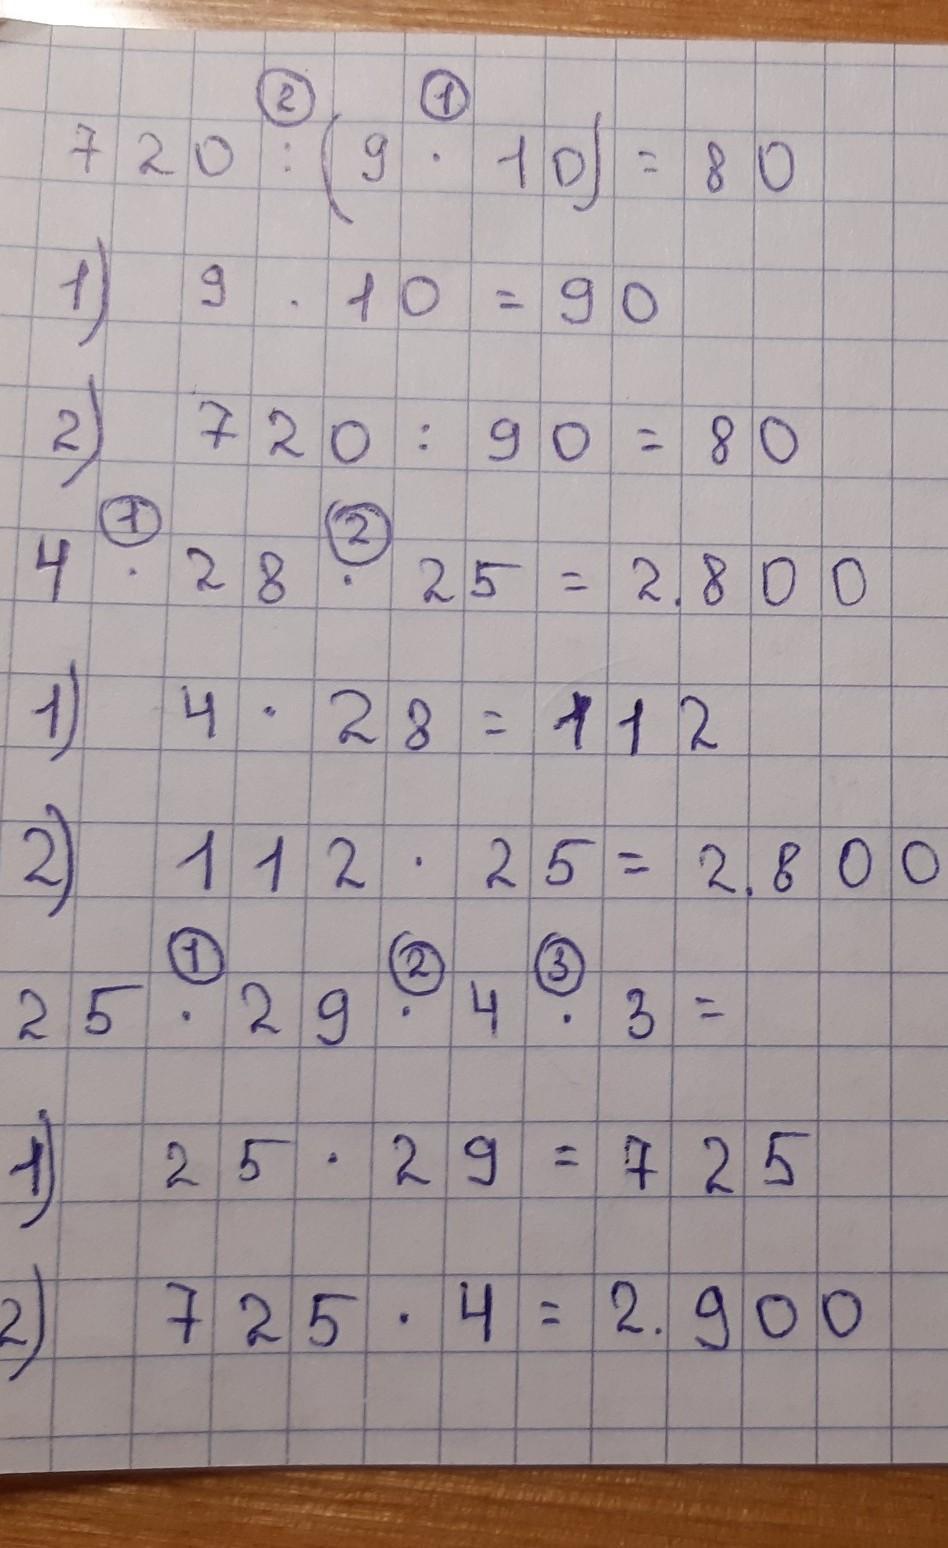 ② ①
720 : (9 · 10) = 80
1) 9 · 10 = 90
2) 720 : 90 = 80
① ②
4 · 28 · 25 = 2.800
1) 4 · 28 = 112
2) 112 · 25 = 2.800
① ② ③
25 · 29 · 4 · 3 =
1) 25 · 29 = 725
2) 725 · 4 = 2.900